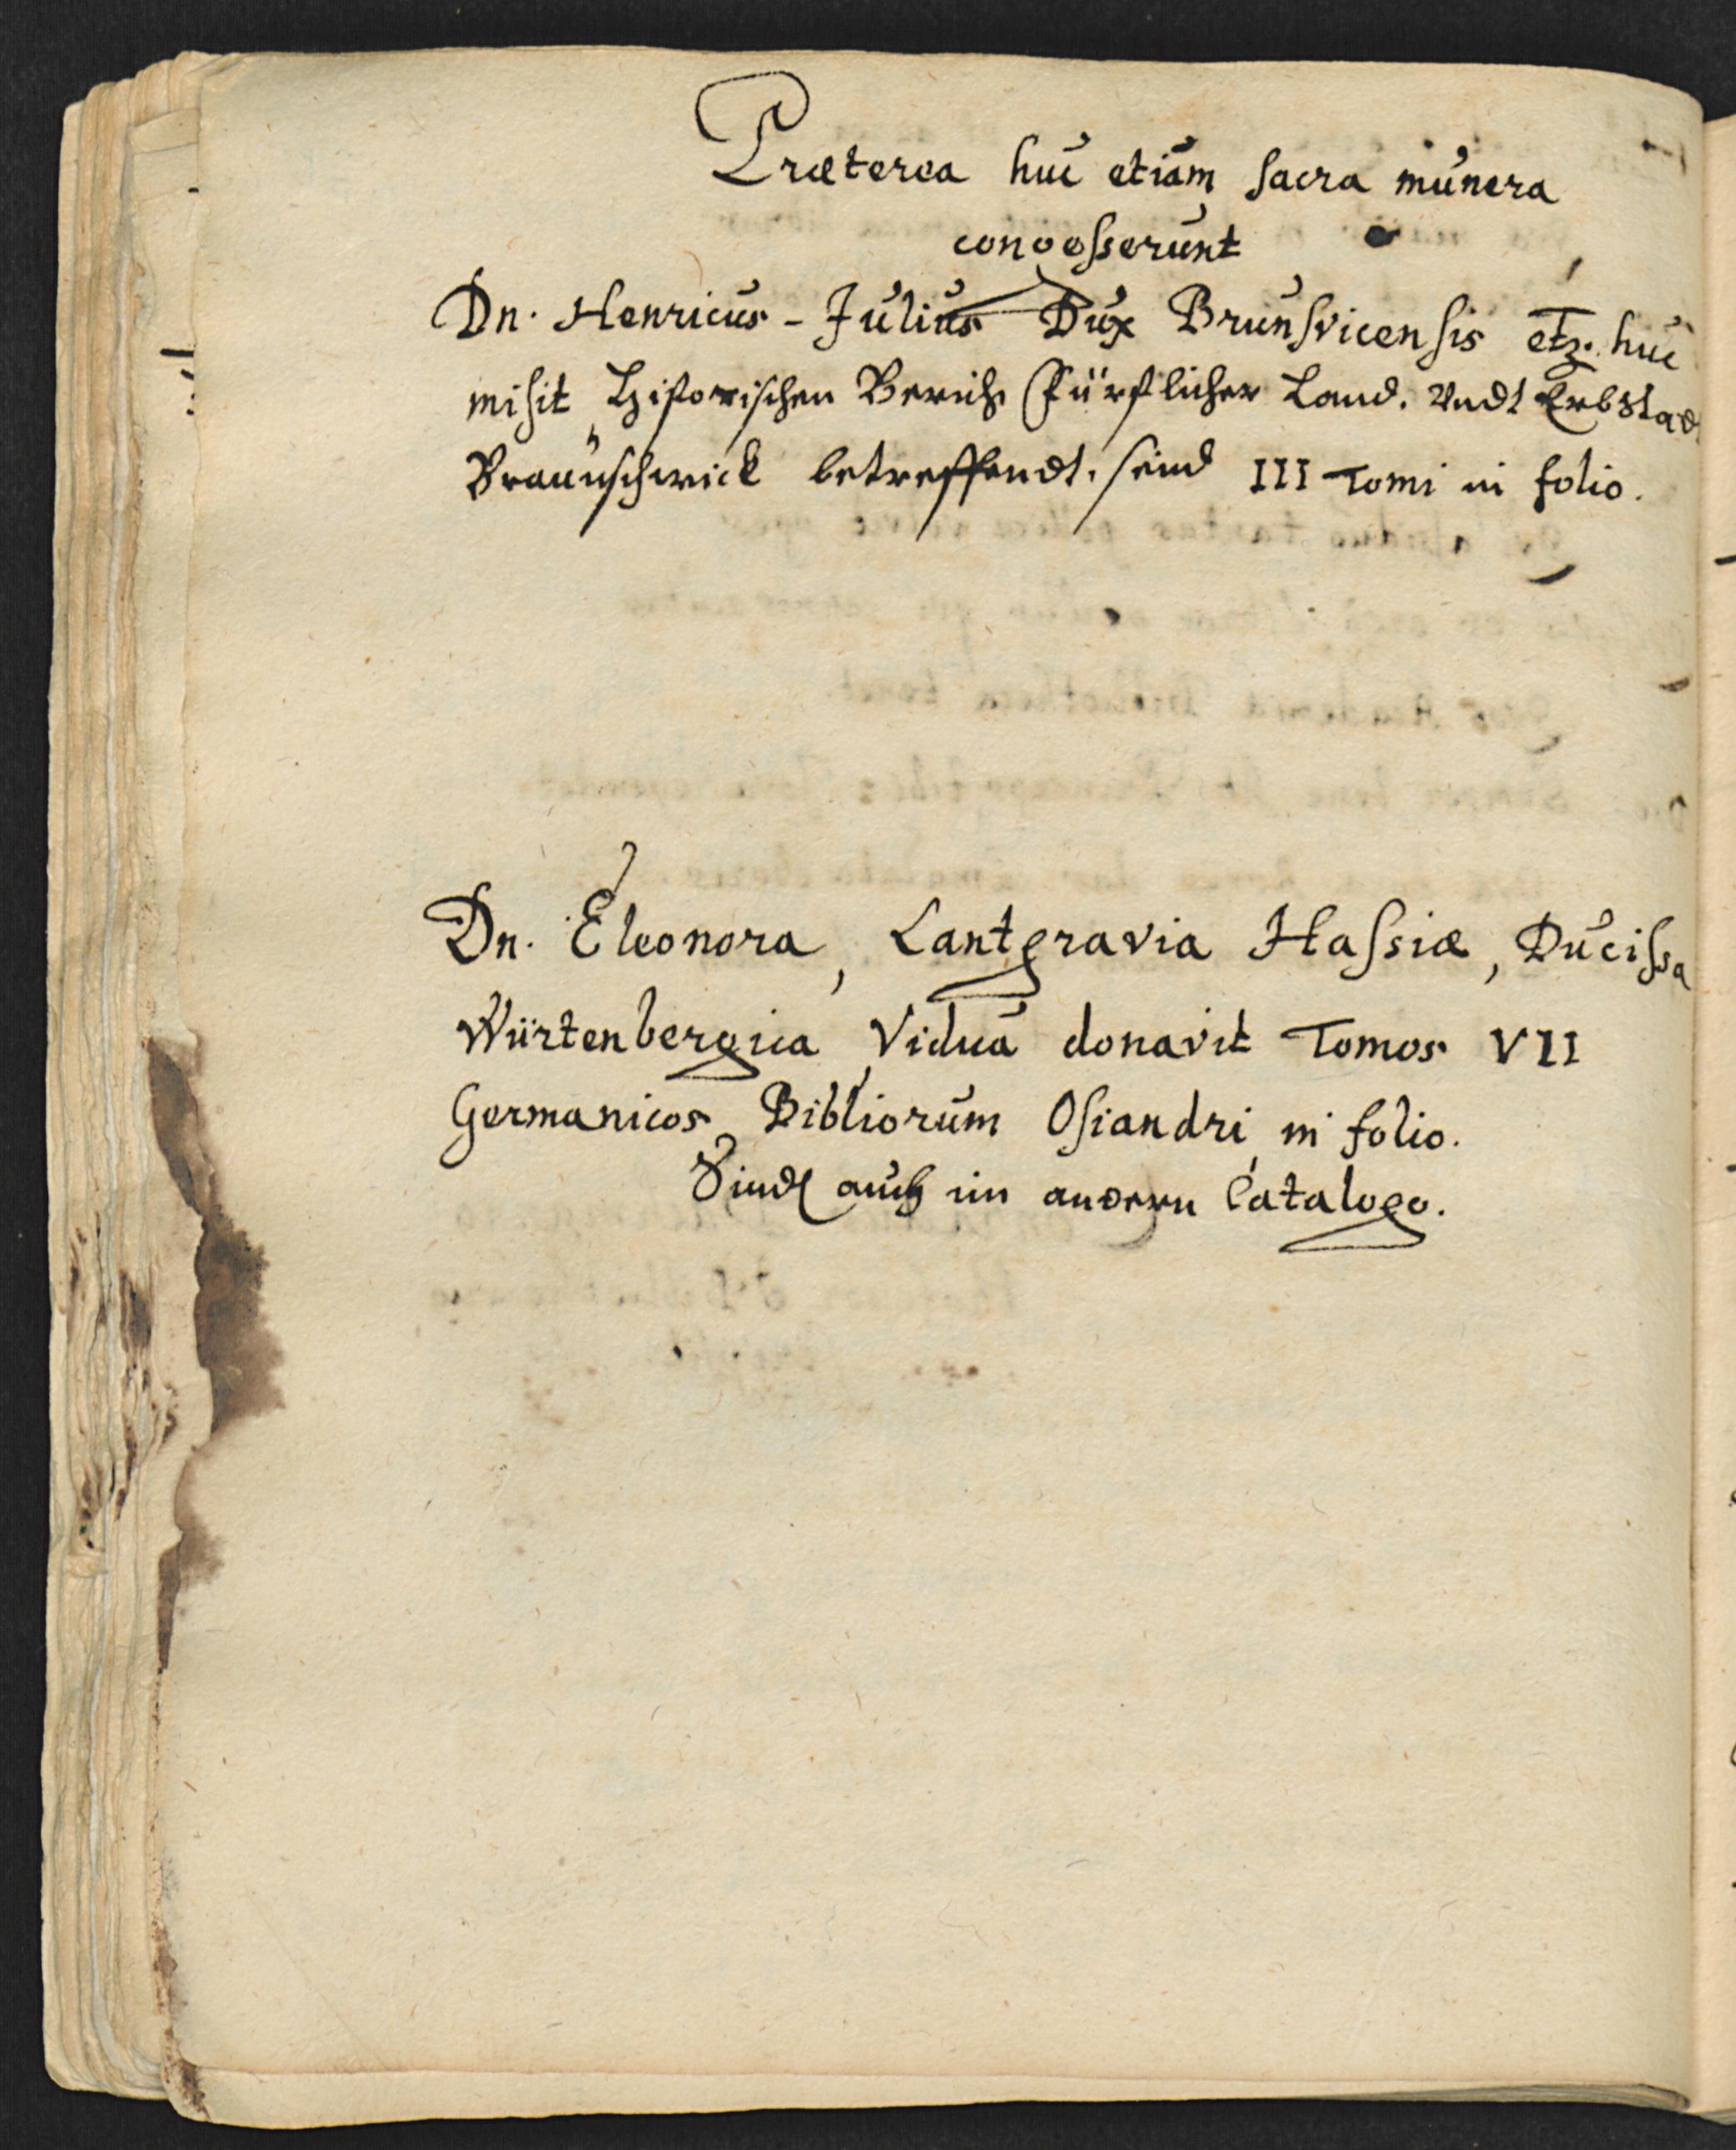 Præterea huc etiam sacra munera
congesserunt
Dn. Henricus - Julius Dux Brunsvicensis etz. huc
misit, Historischen Bericht Fürstlicher Land. Vndt Erbstadt
Braunschwick betreffendt. seind III Tomi in folio.
Dn. Eleonora, Lantgravia Hassiæ, Ducissa
Würtenbergica, Vidua donavit Tomos VII
Germanicos Bibliorum Osiandri in folio.
Sindt auch im andern Catalogo.